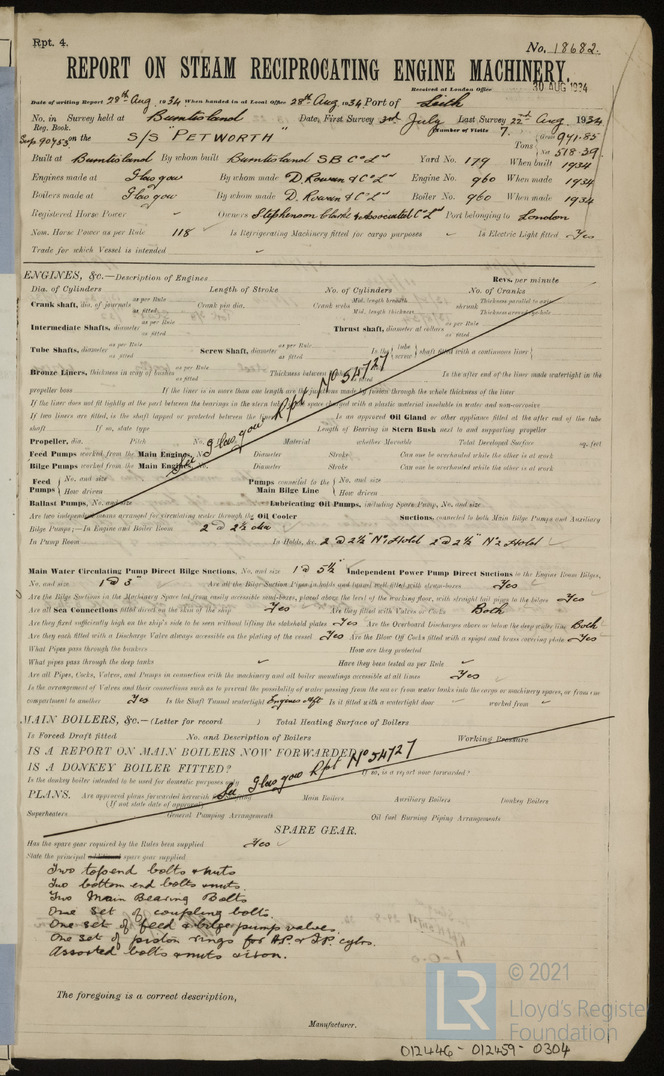 Rpt. 4.
No. 18682.
REPORT ON STEAM RECIPROCATING ENGINE MACHINERY.
Received at London Office 30 AUG 1934
Date of writing Report 28th Aug 1934 When handed in at Local Office 28th Aug 1934 Port of Leith
No. in Survey held at Burntisland Date, First Survey 3rd July Last Survey 22nd Aug 1934
Reg. Book. Number of Visits 7.
90755 on the S/S "PETWORTH" Tons Gross 971.85 Net 518.39
Built at Burntisland By whom built Burntisland S B Co Ld Yard No. 179 When built 1934
Engines made at Glasgow By whom made D. Rowan & Co Ld Engine No. 960 When made 1934
Boilers made at Glasgow By whom made D. Rowan & Co Ld Boiler No. 960 When made 1934
Registered Horse Power - Owners Stephenson Clarke & Associated Cos Ld Port belonging to London
Nom. Horse Power as per Rule 118 Is Refrigerating Machinery fitted for cargo purposes Is Electric Light fitted Yes
Trade for which Vessel is intended
ENGINES, &c.—Description of Engines Revs. per minute
Dia. of Cylinders Length of Stroke No. of Cylinders No. of Cranks
Crank shaft, dia. of journals as per Rule as fitted Crank pin dia. Crank webs Mid. length breadth Mid. length thickness shrunk Thickness parallel to axis Thickness around eye-hole
Intermediate Shafts, diameter as per Rule as fitted Thrust shaft, diameter at collars as per Rule as fitted
Tube Shafts, diameter as per Rule as fitted Screw Shaft, diameter as per Rule as fitted Is the tube screw shaft fitted with a continuous liner
Bronze Liners, thickness in way of bushes as per Rule as fitted Thickness between bushes as per Rule as fitted Is the after end of the liner made watertight in the
propeller boss If the liner is in more than one length are the junctions made by fusion through the whole thickness of the liner
If the liner does not fit tightly at the part between the bearings in the stern tube, is the space charged with a plastic material insoluble in water and non-corrosive
If two liners are fitted, is the shaft lapped or protected between the liners Is an approved Oil Gland or other appliance fitted at the after end of the tube
shaft If so, state type Length of Bearing in Stern Bush next to and supporting propeller
Propeller, dia. Pitch No. Material whether Moveable Total Developed Surface sq. feet
Feed Pumps worked from the Main Engines, No. Diameter Stroke Can one be overhauled while the other is at work
Bilge Pumps worked from the Main Engines, No. Diameter Stroke Can one be overhauled while the other is at work
Feed Pumps No. and size How driven Pumps connected to the Main Bilge Line No. and size How driven
See Glasgow Rpt No 54727
Ballast Pumps, No. and size Lubricating Oil Pumps, including Spare Pump, No. and size
Are two independent means arranged for circulating water through the Oil Cooler Suctions, connected to both Main Bilge Pumps and Auxiliary
Bilge Pumps;—In Engine and Boiler Room 2 @ 2½ dia
In Pump Room In Holds, &c. 2 @ 2½" No 1 Hold 2 @ 2½" No 2 Hold
Main Water Circulating Pump Direct Bilge Suctions, No. and size 1 @ 5½" Independent Power Pump Direct Suctions to the Engine Room Bilges,
No. and size 1 @ 3" Are all the Bilge Suction Pipes in holds and tunnel well fitted with strum-boxes Yes
Are the Bilge Suctions in the Machinery Space led from easily accessible mud-boxes, placed above the level of the working floor, with straight tail pipes to the bilges Yes
Are all Sea Connections fitted direct on the skin of the ship Yes Are they fitted with Valves or Cocks Both
Are they fixed sufficiently high on the ship's side to be seen without lifting the stokehold plates Yes Are the Overboard Discharges above or below the deep water line Both
Are they each fitted with a Discharge Valve always accessible on the plating of the vessel Yes Are the Blow Off Cocks fitted with a spigot and brass covering plate Yes
What Pipes pass through the bunkers How are they protected
What pipes pass through the deep tanks Have they been tested as per Rule
Are all Pipes, Cocks, Valves, and Pumps in connection with the machinery and all boiler mountings accessible at all times Yes
Is the arrangement of Valves and their connections such as to prevent the possibility of water passing from the sea or from water tanks into the cargo or machinery spaces, or from one
compartment to another Yes Is the Shaft Tunnel watertight Engines Aft Is it fitted with a watertight door worked from
MAIN BOILERS, &c.—(Letter for record ) Total Heating Surface of Boilers
Is Forced Draft fitted No. and Description of Boilers Working Pressure
IS A REPORT ON MAIN BOILERS NOW FORWARDED?
IS A DONKEY BOILER FITTED? If so, is a report now forwarded?
See Glasgow Rpt No 54727
Is the donkey boiler intended to be used for domestic purposes only
PLANS. Are approved plans forwarded herewith for Shafting Main Boilers Auxiliary Boilers Donkey Boilers
(If not state date of approval)
Superheaters General Pumping Arrangements Oil fuel Burning Piping Arrangements
SPARE GEAR.
Has the spare gear required by the Rules been supplied Yes
State the principal spare gear supplied
Two top end bolts & nuts
Two bottom end bolts & nuts.
Two Main Bearing Bolts
One set of coupling bolts.
One set of feed & bilge pump valves.
One set of piston rings for H.P. & I.P. cylrs.
Assorted bolts & nuts & iron.
The foregoing is a correct description,
Manufacturer.
LR © 2021
Lloyd's Register
Foundation
012446-012459-0304